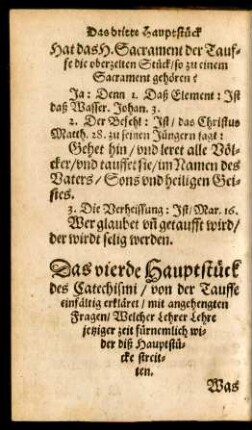 Das dritte Hauptstück
Hat das H. Sacrament der Tauf-
fe die oberzelten Stück/ so zu einem
Sacrament gehören?
Ja: Denn 1. Daß Element: Ist
daß Wasser. Johan. 3.
2. Der Befeht: Ist/ das Christus
Matth. 28. zu seinen Jüngern sagt:
Gehet hin/ vnd leret alle Völ-
cker/ vnd tauffet sie/ im Namen des
Vaters/ Sons vnd heiligen Gei-
stes.
3. Die Verheissung: Ist/ Mar. 16.
Wer glaubet vñ getaufft wird/
der wirdt selig werden.
Das vierde Hauptstück
des Catechismi/ von der Tauffe
einfältig erkläret/ mit angehengten
Fragen/ Welcher Lehrer Lehre
jetziger zeit fürnemlich wi-
der diß Hauptstü-
cke streit-
ten.
Was